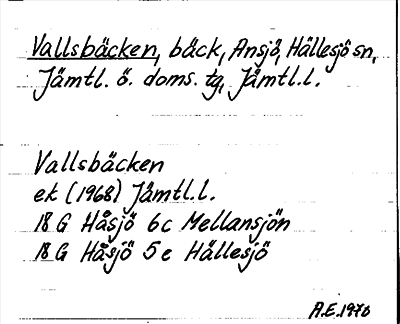 Vallsbäcken, bäck, Ansjö, Hällesjö sn,
Jämtl. ö. doms. tg, Jämtl.l.
Vallsbäcken
ek (1968) Jämtl.l.
18 G Håsjö 6c Mellansjön
18 G Håsjö 5e Hällesjö
A.E. 1970